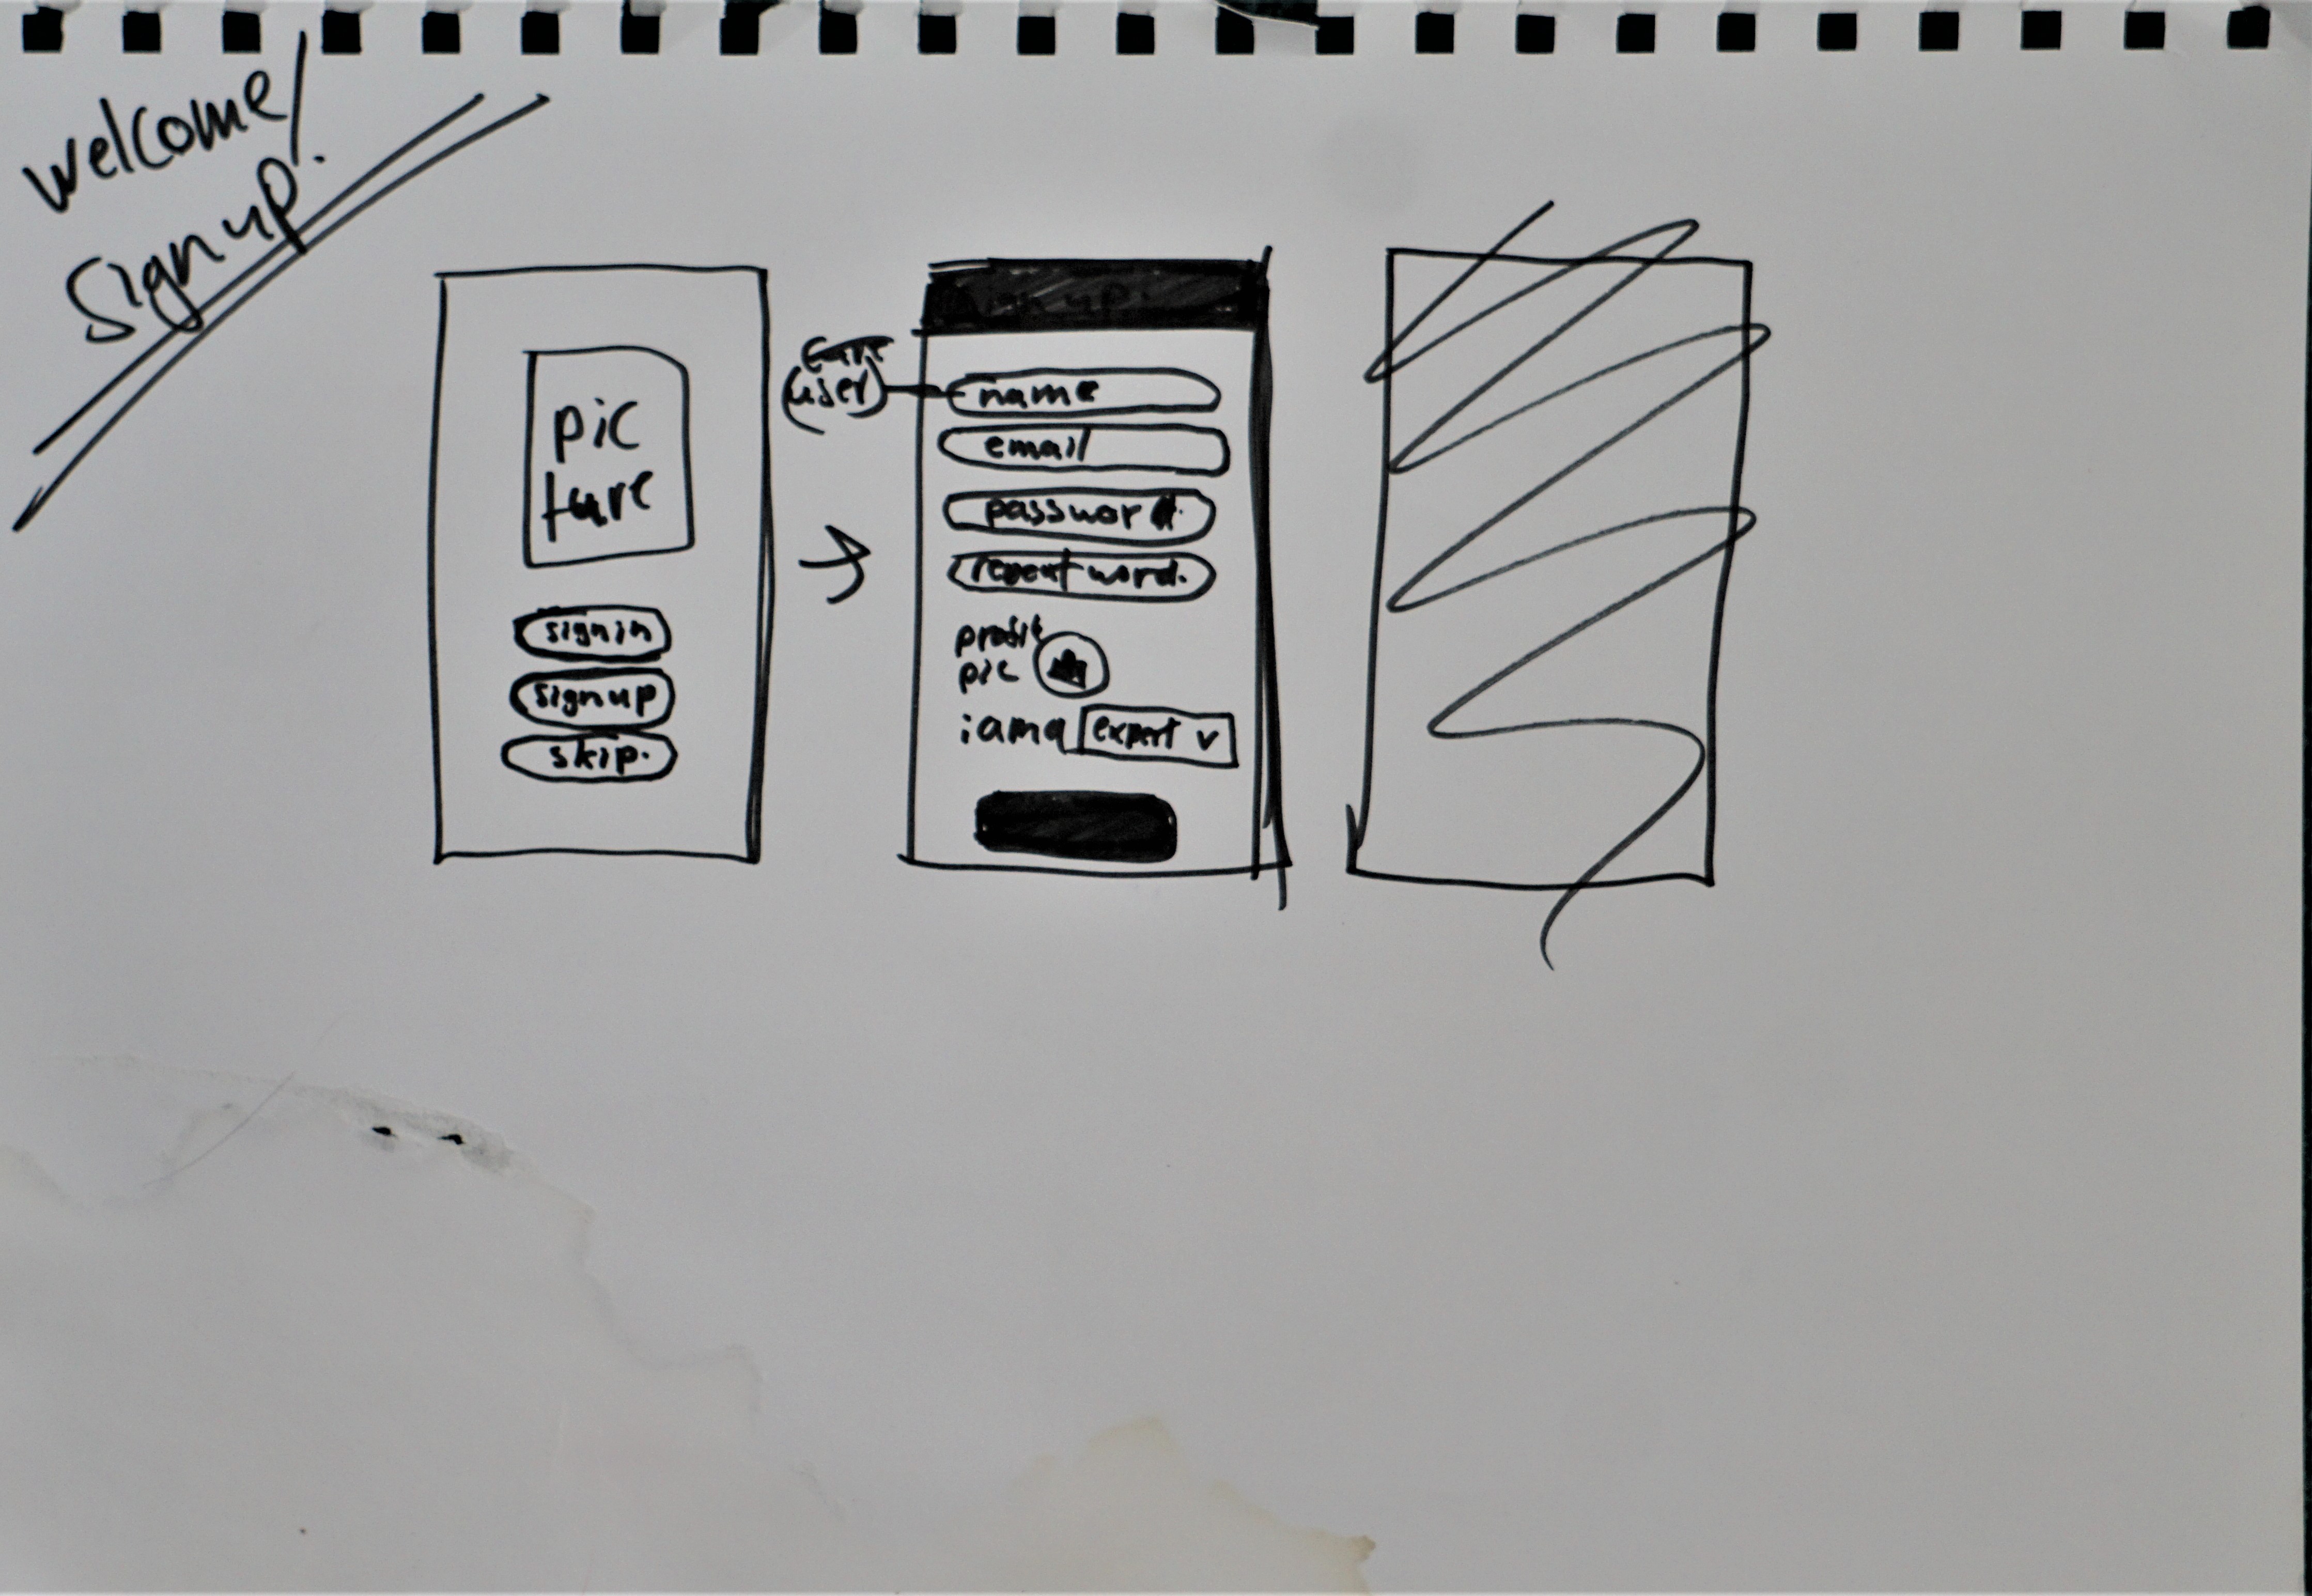 welcome!
Signup
pic
ture
signin
signup
skip.
user
name
email
password.
repeat word.
pic
i am a expert v